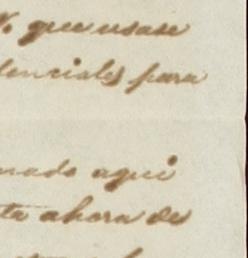 que usase
denciales para
mado aqui
ta ahora de